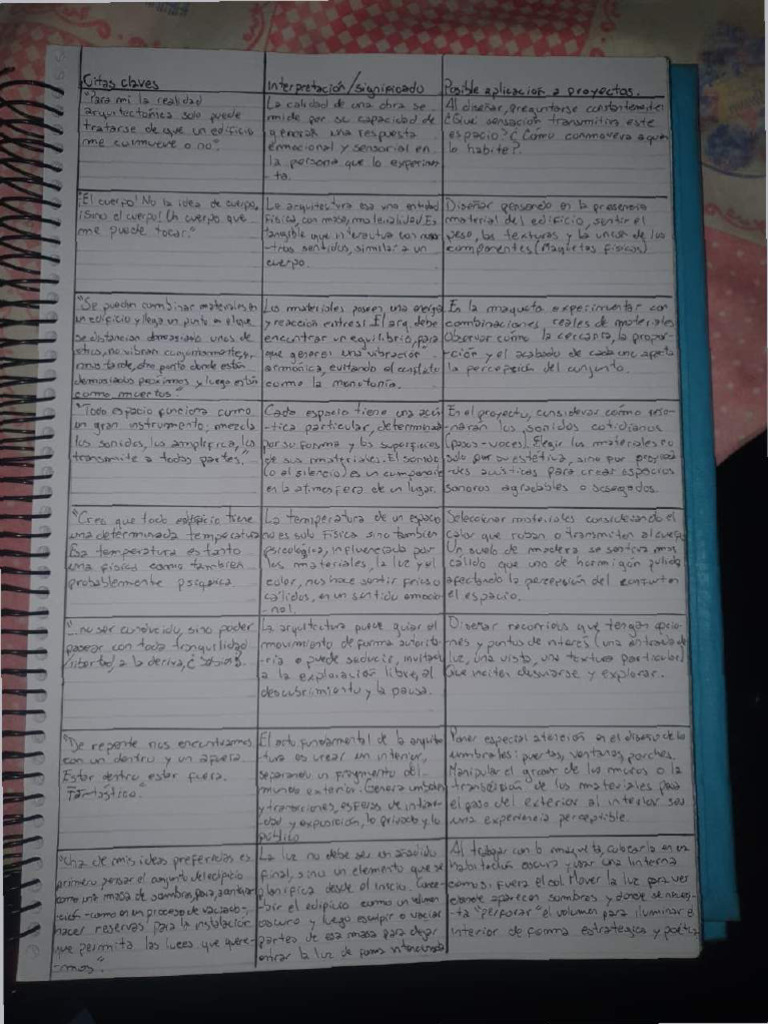 Citas claves
"Para mi la realidad
arquitectónica solo puede
tratarse de que un edificio
me conmueve o no".
Interpretación/significado
La calidad de una obra se
mide por su capacidad de
generar una respuesta
emocional y sensorial en
la persona que lo experimen
-ta.
Posible aplicación a proyectos.
Al diseñar, preguntarse constantemente:
¿Qué sensación transmitira este
espacio? ¿Cómo conmovera a quien
lo habite?.
"¡El cuerpo! No la idea de cuerpo,
¡Sino el cuerpo! Un cuerpo que
me puede tocar."
La arquitectura es una entidad
física, con masa, materialidad. Es
tangible que interactua con nues
-tros sentidos, similar a un
cuerpo.
Diseñar pensando en la presencia
material del edificio, sentir el
peso, las texturas y la union de los
componentes (Maquetas físicas)
"Se pueden combinar materiales en
un edificio y llega un punto en el que
se distancian demasiado unos de
otros, no vibran conjuntamente, y,
mas tarde, otro punto donde están
demasiado proximos y luego están
como muertos."
Los materiales poseen una energía
y reacción entre sí. El arq. debe
encontrar un equilibrio, para
que generen una "vibración"
armónica, evitando el conflicto
como la monotonía.
En la maqueta experimentar con
combinaciones, reales de materiales
Observar cómo la cercanía, la propor-
-ción y el acabado de cada uno afecta
la percepción del conjunto.
"Todo espacio funciona como
un gran instrumento; mezcla
los sonidos, los amplifica, los
transmite a todas partes."
Cada espacio tiene una acús
-tica particular, determinada
por su forma y las superficies
de sus materiales. El sonido
(o el silencio) es un componente
en la atmosfera de un lugar.
En el proyecto, considerar cómo reso-
-narán los sonidos cotidianos
(pasos-voces). Elegir los materiales no
solo por su estética, sino por propieda
-des acústicas para crear espacios
sonoros agradables o sosegados.
"Creo que todo edificio tiene
una determinada temperatura
Esa temperatura es tanto
una física como tambien
probablemente psíquica.
La temperatura de un espacio
no es solo física sino también
psicológica, influenciada por
los materiales, la luz y el
color, nos hace sentir frios o
cálidos, en un sentido emocio
-nal.
Seleccionar materiales considerando el
calor que roban o transmiten al cuerpo
Un suelo de madera se sentira mas
cálido que uno de hormigón pulido
afectando la percepción del confort en
el espacio.
"... no ser conducido, sino poder
pasear con toda tranquilidad
(libertad) a la deriva, ¿
La arquitectura puede guiar el
movimiento de forma autorita-
-ria o puede seducir, invitando
a la exploración libre, al
descubrimiento y la pausa.
Diseñar recorridos que tengan opcio-
nes y puntos de interés (una entrada de
luz, una vista, una textura particular)
que inviten desviarse y explorar.
"De repente nos encontramos
con un dentro y un afuera.
Estar dentro, estar fuera.
Fantástico."
El acto fundamental de la arquitec
-tura es crear un interior,
separando un fragmento del
mundo exterior. Genera umbrales
y transiciones, esferas de intimi-
-dad y exposición, lo privado y lo
público
Poner especial atención en el diseño de los
umbrales: puertas, ventanas, porches.
Manipular el grosor de los muros o la
transición de los materiales para
el paso del exterior al interior sea
una experiencia perceptible.
"Una de mis ideas preferidas es:
primero pensar el conjunto del edificio
como una masa de sombras, para, a continua
-ción -como en un proceso de vaciado-,
hacer reservas para la instalación
que permita las luces que quere-
-mos".
La luz no debe ser un añadido
final, sino un elemento que se
planifica desde el inicio. Conce-
-bir el edificio como un volumen
oscuro y luego esculpir o vaciar
partes de esa masa para dejar
entrar la luz de forma intencionada
Al trabajar con la maqueta, colocarla en una
habitación oscura y usar una linterna
como si fuera el sol. Mover la luz para ver
donde aparecen sombras y donde se necesi-
-ta "perforar" el volumen para iluminar el
interior de forma estratégica y poética